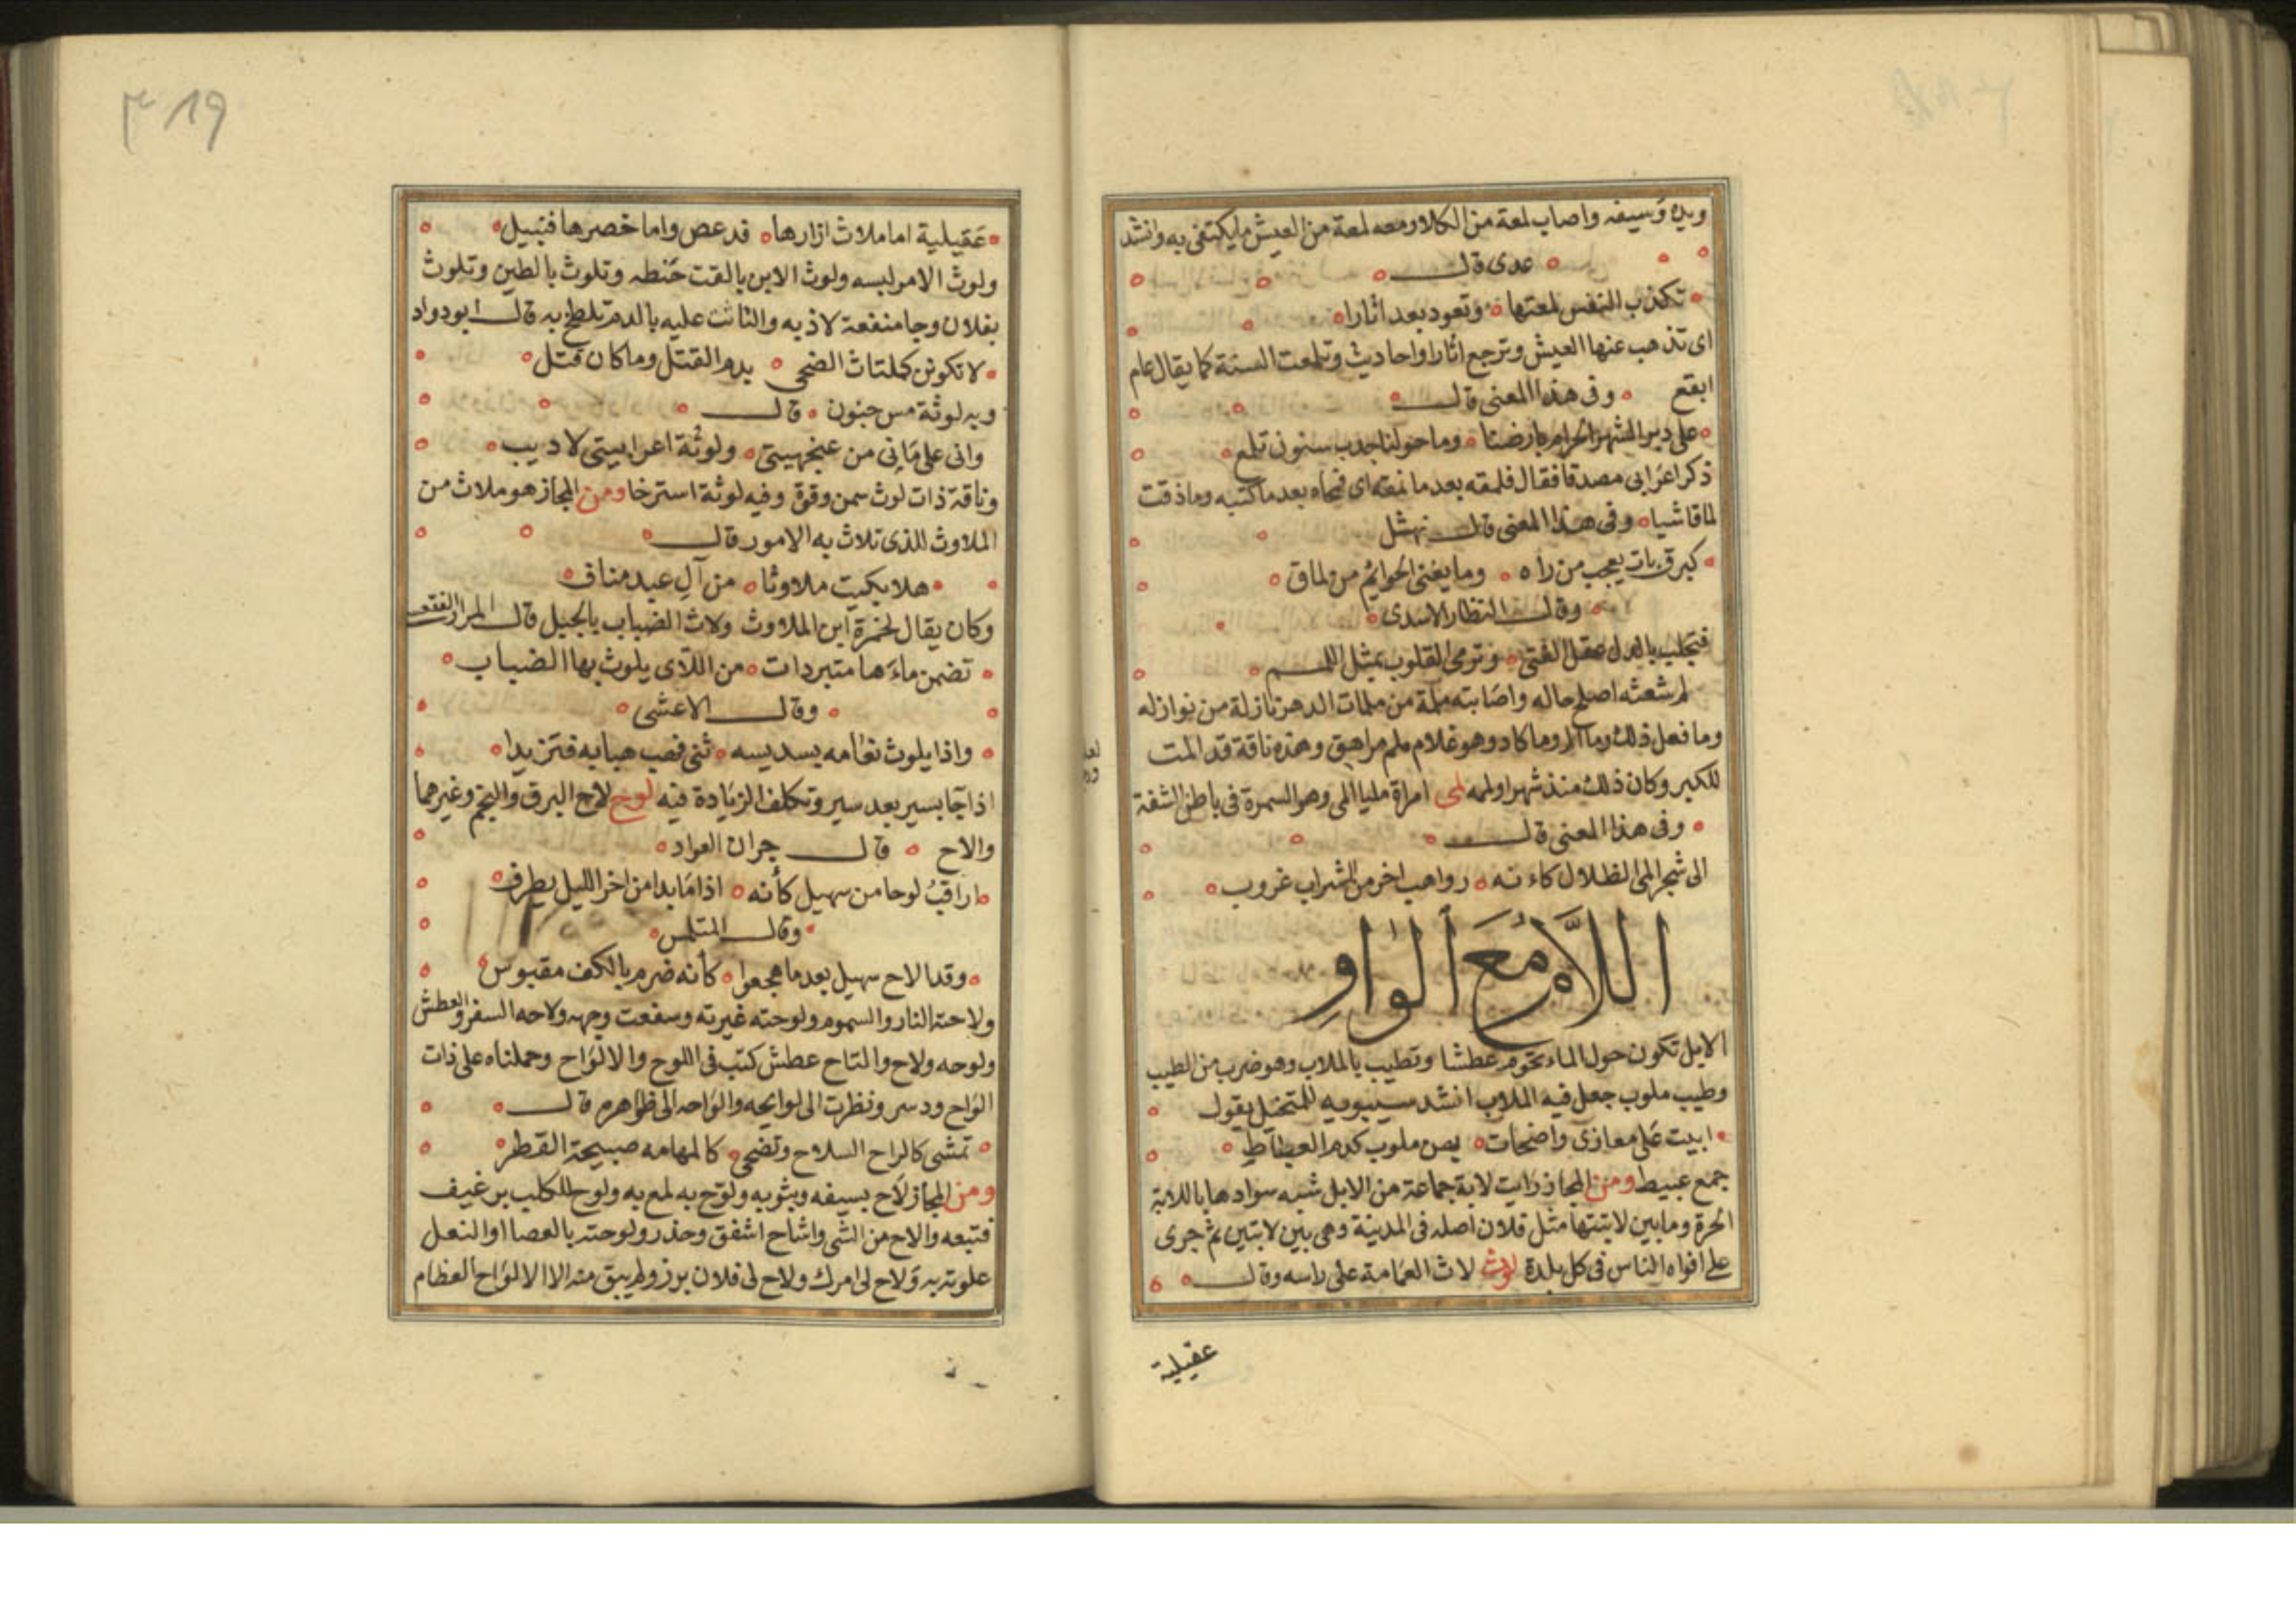 ويده وسيفه واصاب لمعة من الكلا ومعه لمعة من العيش ما يكتفى به وانشد
عدى قال
تكذب النفس لمعتها وتعود بعد اثارا
اى تذهب عنها العيش وترجع اثارا واحاديث وتلمعت السنة كما يقال عام
ابقع وفى هذا المعنى قال
على دبر الشهر الحرام بارضنا وما حولنا جدب سنون تلمع
ذكر اعرابى مصدقا فقال فلمقه بعد ما نمقه اى فمحاه بعد ما كتبه وما ذقت
لماقا شيا وفى هذا المعنى قال نهشل
كبرق بات يعجب من راه وما يغنى الحوائم من لماق
وقال النظار الاسدى
فتجلب بالدل عقل الفتى وترمى القلوب بمثل اللمم
لم شعثه اصلح حاله واصابته ملمة من ملمات الدهر نازلة من نوازله
وما فعل ذلك وما الم وما كاد وهو غلام ملم مراهق وهذه ناقة قد المت
للكبر وكان ذلك منذ شهر او لمه لمى امراة مليا المى وهو السمرة فى باطن الشفة
وفى هذا المعنى قال
الى شجر المى الظلال كاءنه رواهب اخر من الشراب غروب
اللَّام مَعَ الْوَاوِ
الابل تكون حول الماء تحوم عطشا وتطيب بالملاب وهو ضرب من الطيب
وطيب ملوب جعل فيه الملاب انشد سيبويه للمتخل يقول
ابيت على معازى واضحات بهن ملوب كدم العباط
جمع عبيط ومن المجاز رايت لابة جماعة من الابل شبه سوادها باللابة
الحرة وما بين لابتيها مثل فلان اصله فى المدينة وهى بين لابتين ثم جرى
على افواه الناس فى كل بلدة لوث لاث العمامة على راسه وقال
عقيلية
٣١٩
عَقيلية اما ملاث ازارها فدعص واما خصرها فبتيل
ولوث الامر لبسه ولوث الابن بالقت خنطه وتلوث بالطين وتلوث
بفلان وجا منفعة لاذ به والتاثت عليه بالدم تلطخ به قال ابو دواد
لا تكونن كملتاث الضحى بدم القتل وما كان قتل
وبه لوثة مس جنون قال
وانى على مَا فى من عنجهيتى ولوثة اعرابيتى لاديب
وناقة ذات لوث سمن وقوة وفيه لوثة استرخا ومن المجاز هو ملاث من
الملاوث الذى تلاث به الامور قال
هلا بكيت ملاوثا من آل عبد مناف
وكان يقال لحمزة ابن الملاوث ولاث الضباب بالجبل قال المرار الفقعسى
تضمن ماءَها متبردات من اللآى يلوث بها الضباب
وقال الاعشى
واذا يلوث نغامه بسديسه ثنى فهب هبابه فتزيدا
اذا جا بسير بعد سير وتكلف الزيادة فيه لوح لاح البرق والنجم وغيرهما
والاح قال جران العواد
اراقبُ لوحا من سهيل كأنه اذا مَا بدا من اخر الليل يطرف
وقال المتلمس
وقد الاح سهيل بعد ما هجعوا كأنه ضرم بالكف مقبوس
ولاحته النار والسموم ولوحته غيرته وسفعت وجهه ولاحه السفر والعطش
ولوحه ولاح والتاح عطش كتب فى اللوح والالواح وحملناه على ذات
الواح ودسر ونظرت الى لوايحه والواحه الى ظواهره قال
تمشى كالواح السلاح وتضحى كالمهامه صبيحة القطر
ومن المجاز لاح بسيفه وبثوبه ولوح به لمع به ولوح للكلب برغيف
فتبعه والاح من الشى واشاح اشفق وحذر ولوحته بالعصا او النعل
علوته به ولاح لى امرك ولاح لى فلان برز ولم يبق منه الا الالواح العظام